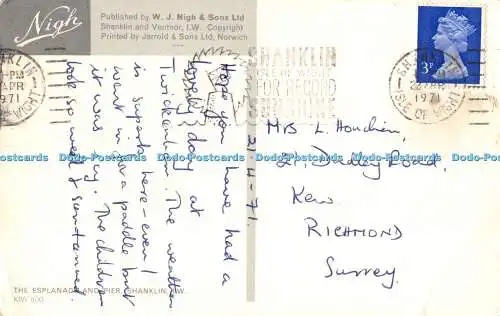 Nigh
Published by W. J. Nigh & Sons Ltd
Shanklin and Ventnor, I.W. Copyright
Printed by Jarrold & Sons Ltd, Norwich
SHANKLIN
ISLE OF WIGHT
FOR RECORD
SUNSHINE
SHANKLIN
PM
APR
1971
SHANKLIN
22 APR
1971
ISLE OF
3P
21-4-71.
Hope you have had a
lovely day at
Twickenham. The weather
is superb here - even I
went in for a paddle but
it was icy. The children
look so well & suntanned.
Mrs L. Houchin,
21, Dudley Road,
Kew
RICHMOND
Surrey.
THE ESPLANADE AND PIER, SHANKLIN, I.W.
Dodo-Postcards Dodo-Postcards Dodo-Postcards Dodo-Postcards Dodo-Postcards Dodo-Postcards Dodo-Postcards